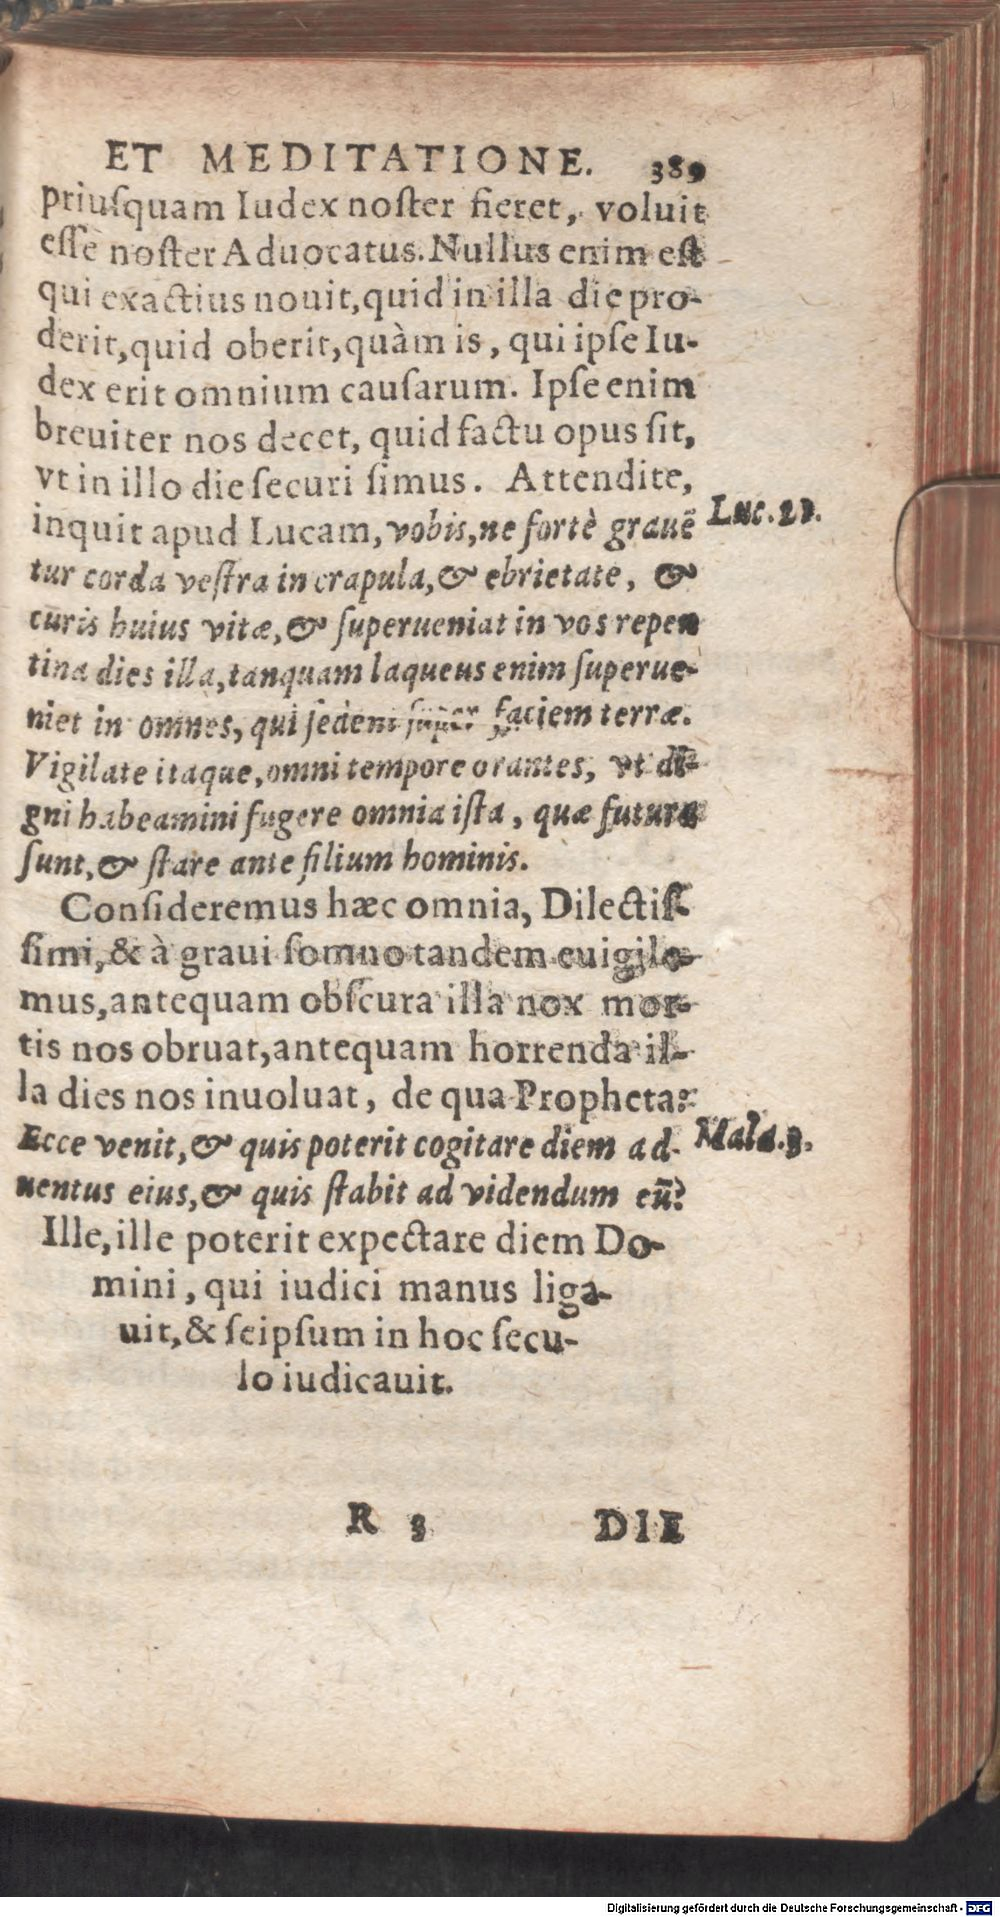 ET MEDITATIONE. 389
priuſquam Iudex noſter fieret, voluit
eſſe noſter Aduocatus. Nullus enim eſt
qui exactius nouit, quid in illa die pro-
derit, quid oberit, quàm is, qui ipſe Iu-
dex erit omnium cauſarum. Ipſe enim
breuiter nos decet, quid factu opus ſit,
vt in illo die ſecuri ſimus. Attendite,
inquit apud Lucam, vobis, ne fortè grauē
Luc. 21.
tur corda veſtra in crapula, & ebrietate, &
curis huius vitæ, & ſuperueniat in vos repen
tina dies illa, tanquam laqueus enim ſuperue-
niet in omnes, qui ſedent ſuper faciem terræ.
Vigilate itaque, omni tempore orantes, vt di-
gni habeamini fugere omnia iſta, quæ futura
ſunt, & ſtare ante filium hominis.
Conſideremus hæc omnia, Dilectiſ-
ſimi, & à graui ſomno tandem euigile-
mus, antequam obſcura illa nox mor-
tis nos obruat, antequam horrenda il-
la dies nos inuoluat, de qua Propheta:
Ecce venit, & quis poterit cogitare diem ad-
Mala. 3.
uentus eius, & quis ſtabit ad videndum eū?
Ille, ille poterit expectare diem Do-
mini, qui iudici manus liga-
uit, & ſeipſum in hoc ſecu-
lo iudicauit.
R 3 DIE
Digitalisierung gefördert durch die Deutsche Forschungsgemeinschaft - DFG